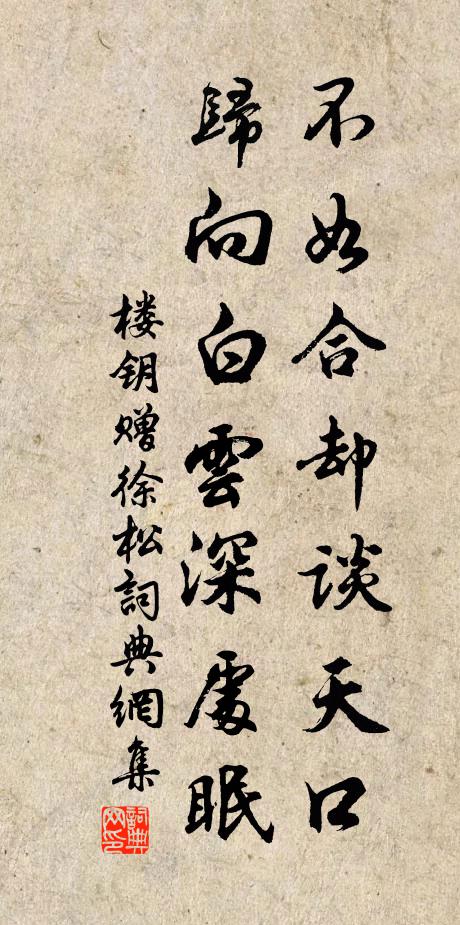 不如合却谈天口
歸向白雲深處眠
楼钥赠徐松詞典網集
詞典网印